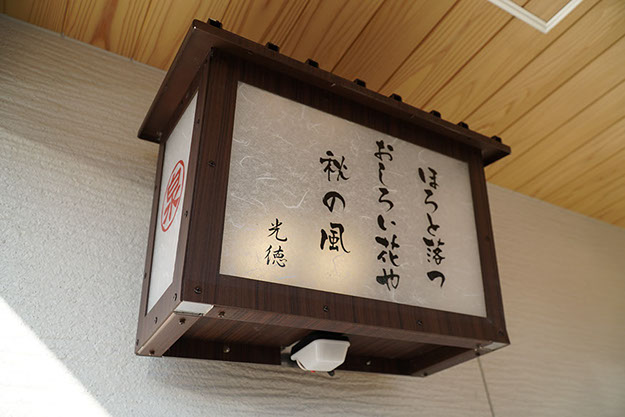 ほろと落つ
おしろい花や
秋の風
光徳